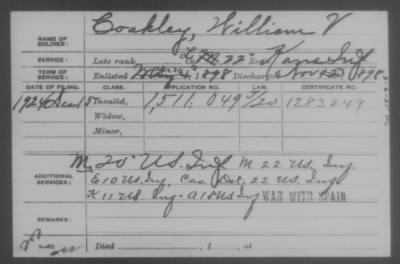 NAME OF SOLDIER: Coakley, William V
SERVICE: Late rank, Co. 22" Reg. Kans Inf
TERM OF SERVICE: Enlisted May 1898 Discharged Nov 1898.
DATE OF FILING. CLASS. APPLICATION NO. LAW. CERTIFICATE NO.
1924 Dec 15 Invalid, 1,511.049 5/20 1283249
Widow,
Minor,
ADDITIONAL SERVICES: M, 20" U.S. Inf M 22 U.S. Inf.
E 10 U.S. Inf, Cas. Det. 22 U.S. Inf
K 11 U.S. Inf - A 18 U.S Inf WAR WITH SPAIN
REMARKS:
Died , 1 , at